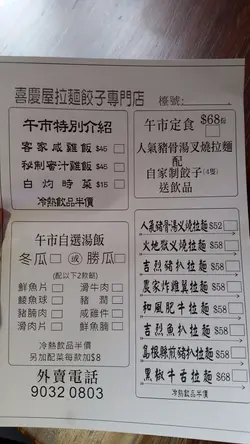 喜慶屋拉麵餃子專門店 檯號:
午市特別介紹
客家咸雞飯 $45
秘制蜜汁雞飯 $45
白灼時菜 $15
冷熱飲品半價
午市定食 $68
人氣豬骨湯叉燒拉麵
配
自家制餃子(4隻)
送飲品
午市自選湯飯
冬瓜 或 勝瓜
(配以下2款餸)
鮮魚片 滑牛肉
鯪魚球 豬潤
豬腩肉 咸雞件
滑肉片 鮮魚腩
冷熱飲品半價
另加配菜每款加$8
外賣電話
9032 0803
人氣豬骨湯叉燒拉麵 $52
火地獄叉燒拉麵 $58
吉烈豬扒拉麵 $58
農家炸雞翼拉麵 $58
和風肥牛拉麵 $58
吉烈魚扒拉麵 $58
島根縣煎豬扒拉麵 $58
黑椒牛舌拉麵 $68